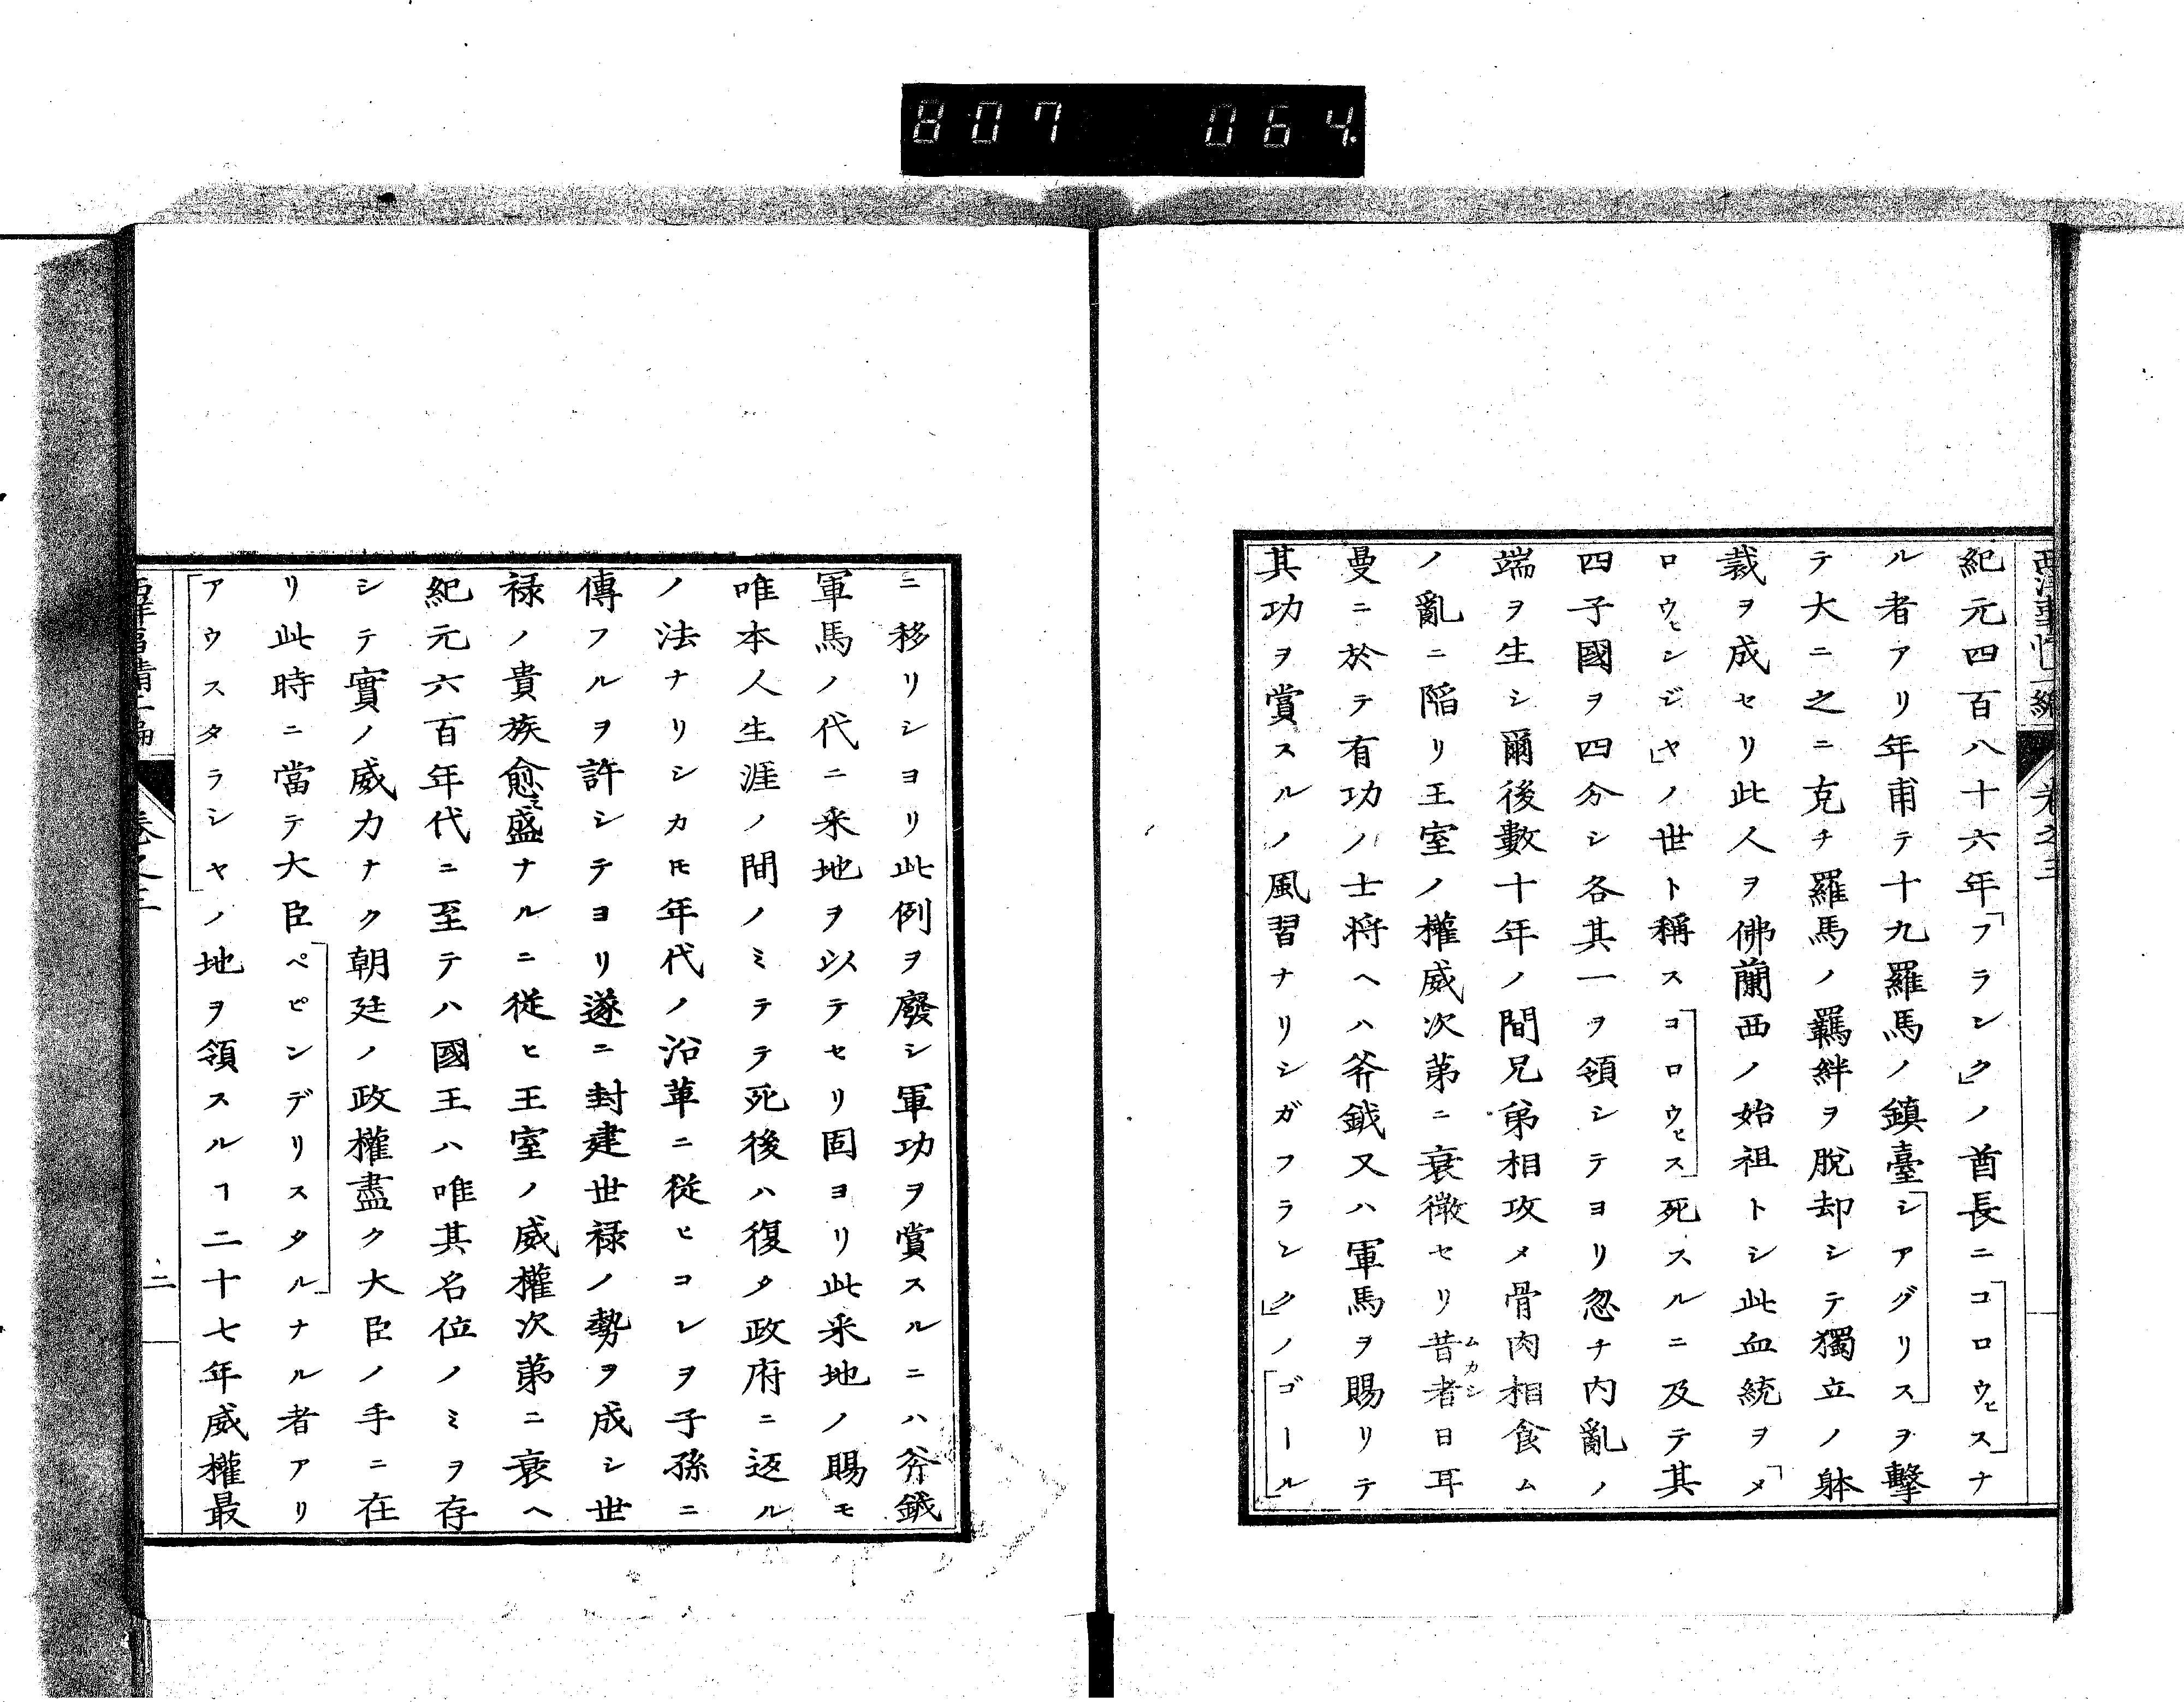 807 064
紀元四百八十六年「フランク」ノ酋長ニ「コロウヒス」ナ
ル者アリ年甫テ十九羅馬ノ鎮臺「シアグリス」ヲ擊
テ大ニ之ニ克チ羅馬ノ羈絆ヲ脫却シテ獨立ノ躰
裁ヲ成セリ此人ヲ佛蘭西ノ始祖トシ此血統ヲ「メ
ロウヒンジヤ」ノ世ト稱ス「コロウヒス」死スルニ及テ其
四子國ヲ四分シ各其一ヲ領シテヨリ忽チ內亂ノ
端ヲ生シ爾後數十年ノ間兄弟相攻メ骨肉相食ム
ノ亂ニ陷リ王室ノ權威次第ニ衰微セリ昔者ムカシ日耳
曼ニ於テ有功ノ士將ヘハ斧鉞又ハ軍馬ヲ賜リテ
其功ヲ賞スルノ風習ナリシガフランク」ノ「ゴール」
ニ移リショリ此例ヲ廢シ軍功ヲ賞スルニハ斧鉞
軍馬ノ代ニ采地ヲ以テセリ固ヨリ此采地ノ賜モ
唯本人生涯ノ間ノミテテ死後ハ復タ政府ニ返ル
ノ法ナリシカ𪜈年代ノ沿革ニ從ヒコレヲ子孫ニ
傳フルヲ許シテヨリ遂ニ封建世祿ノ勢ヲ成シ世
祿ノ貴族愈盛ナルニ從ヒ王室ノ威權次第ニ衰ヘ
紀元六百年代ニ至テハ國王ハ唯其名位ノミヲ存
シテ實ノ威力ナク朝廷ノ政權盡ク大臣ノ手ニ在
リ此時ニ當テ大臣「ペピンデリスタル」ナル者アリ
「アウスタラシヤ」ノ地ヲ領スルヿ二十七年威權最
二